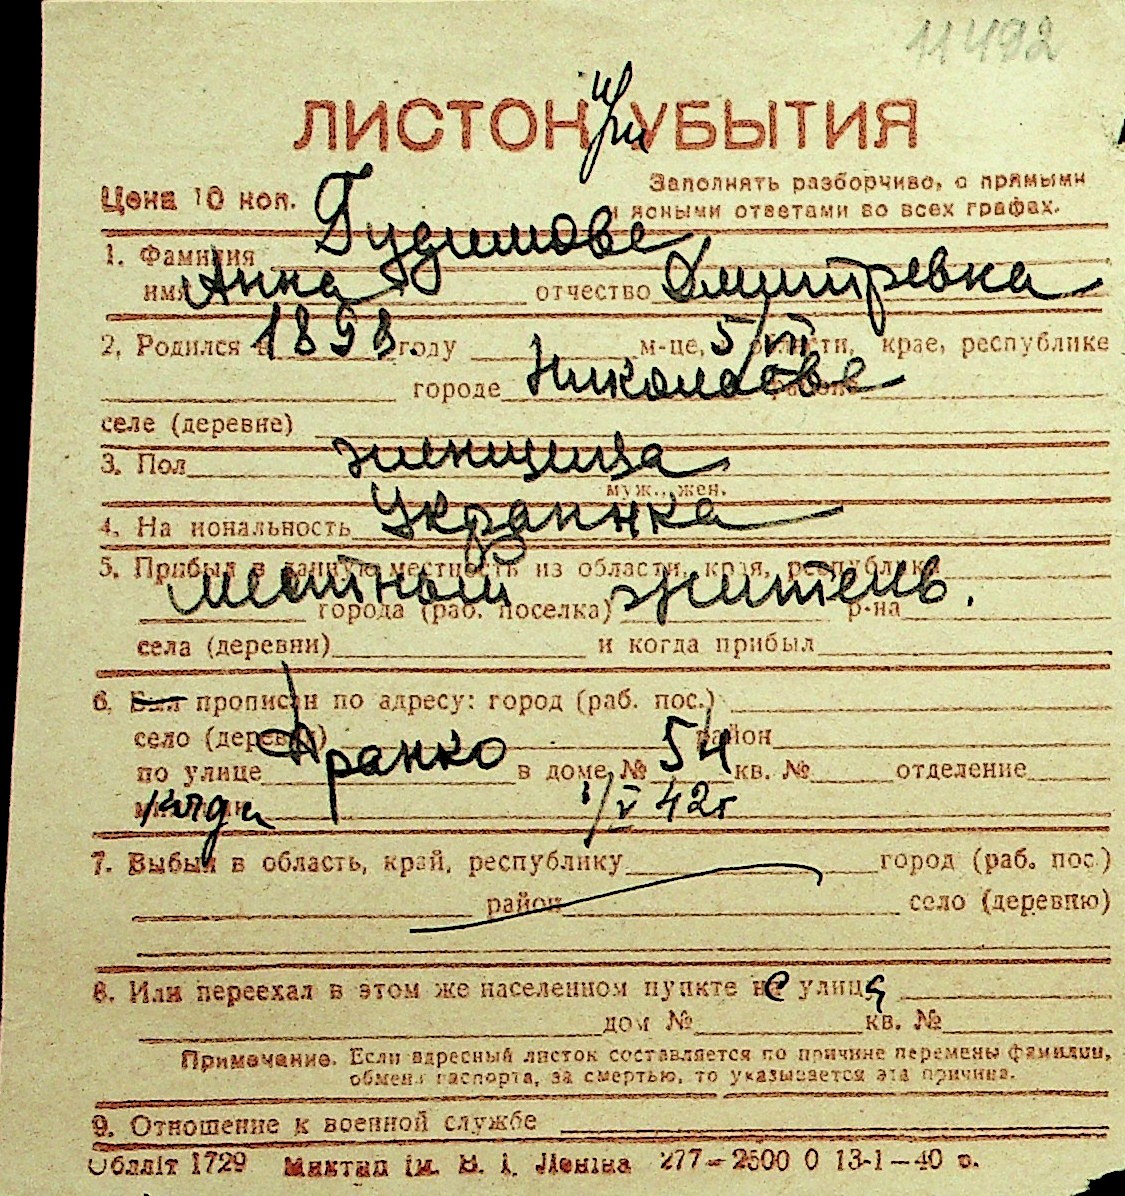 11492
ЛИСТОК при УБЫТИЯ
Цена 10 коп. Заполнять разборчиво, с прямыми
и ясными ответами во всех графах.
1. Фамилия Гудимова
имя Анна отчество Дмитревна
2. Родился в 1893. году м-це, 5/VII области, крае, республике
городе Николаеве районе
селе (деревне)
3. Пол женщина
муж., жен.
4. На иональность Украинка
5. Прибыл в данную местность из области, края, республики
местный житель.
города (раб. поселка) р-на
села (деревни) и когда прибыл
6. Был прописан по адресу: город (раб. пос.)
село (деревня) район
по улице Франко в доме № 54 кв. № отделение
милиции когда 1/V 42г
7. Выбыл в область, край, республику город (раб. пос.)
район село (деревню)
8. Или переехал в этом же населенном пункте с улицы
дом № кв. №
Примечание. Если адресный листок составляется по причине перемены фамилии,
обмена паспорта, за смертью, то указывается эта причина.
9. Отношение к военной службе
Обллiт 1729 Миктип iм. В. I. Ленiна 277—2500 0 13-1—40 р.